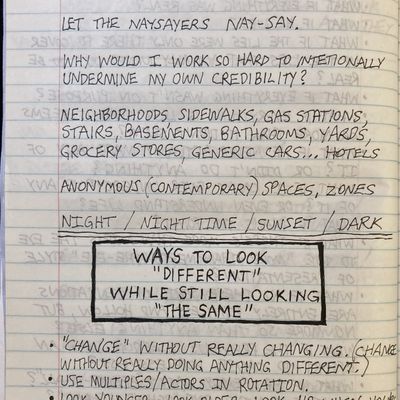 LET THE NAYSAYERS NAY-SAY.
WHY WOULD I WORK SO HARD TO INTETIONALLY
UNDERMINE MY OWN CREDIBILITY?
NEIGHBORHOODS SIDEWALKS, GAS STATIONS,
STAIRS, BASEMENTS, BATHROOMS, YARDS,
GROCERY STORES, GENERIC CARS... HOTELS
ANONYMOUS (CONTEMPORARY) SPACES, ZONES
NIGHT / NIGHT TIME / SUNSET / DARK
WAYS TO LOOK
"DIFFERENT"
WHILE STILL LOOKING
"THE SAME"
• "CHANGE" WITHOUT REALLY CHANGING. (CHANGE
WITHOUT REALLY DOING ANYTHING DIFFERENT.)
• USE MULTIPLES/ACTORS IN ROTATION.
• LOOK YOUNGER, LOOK OLDER, LOOK